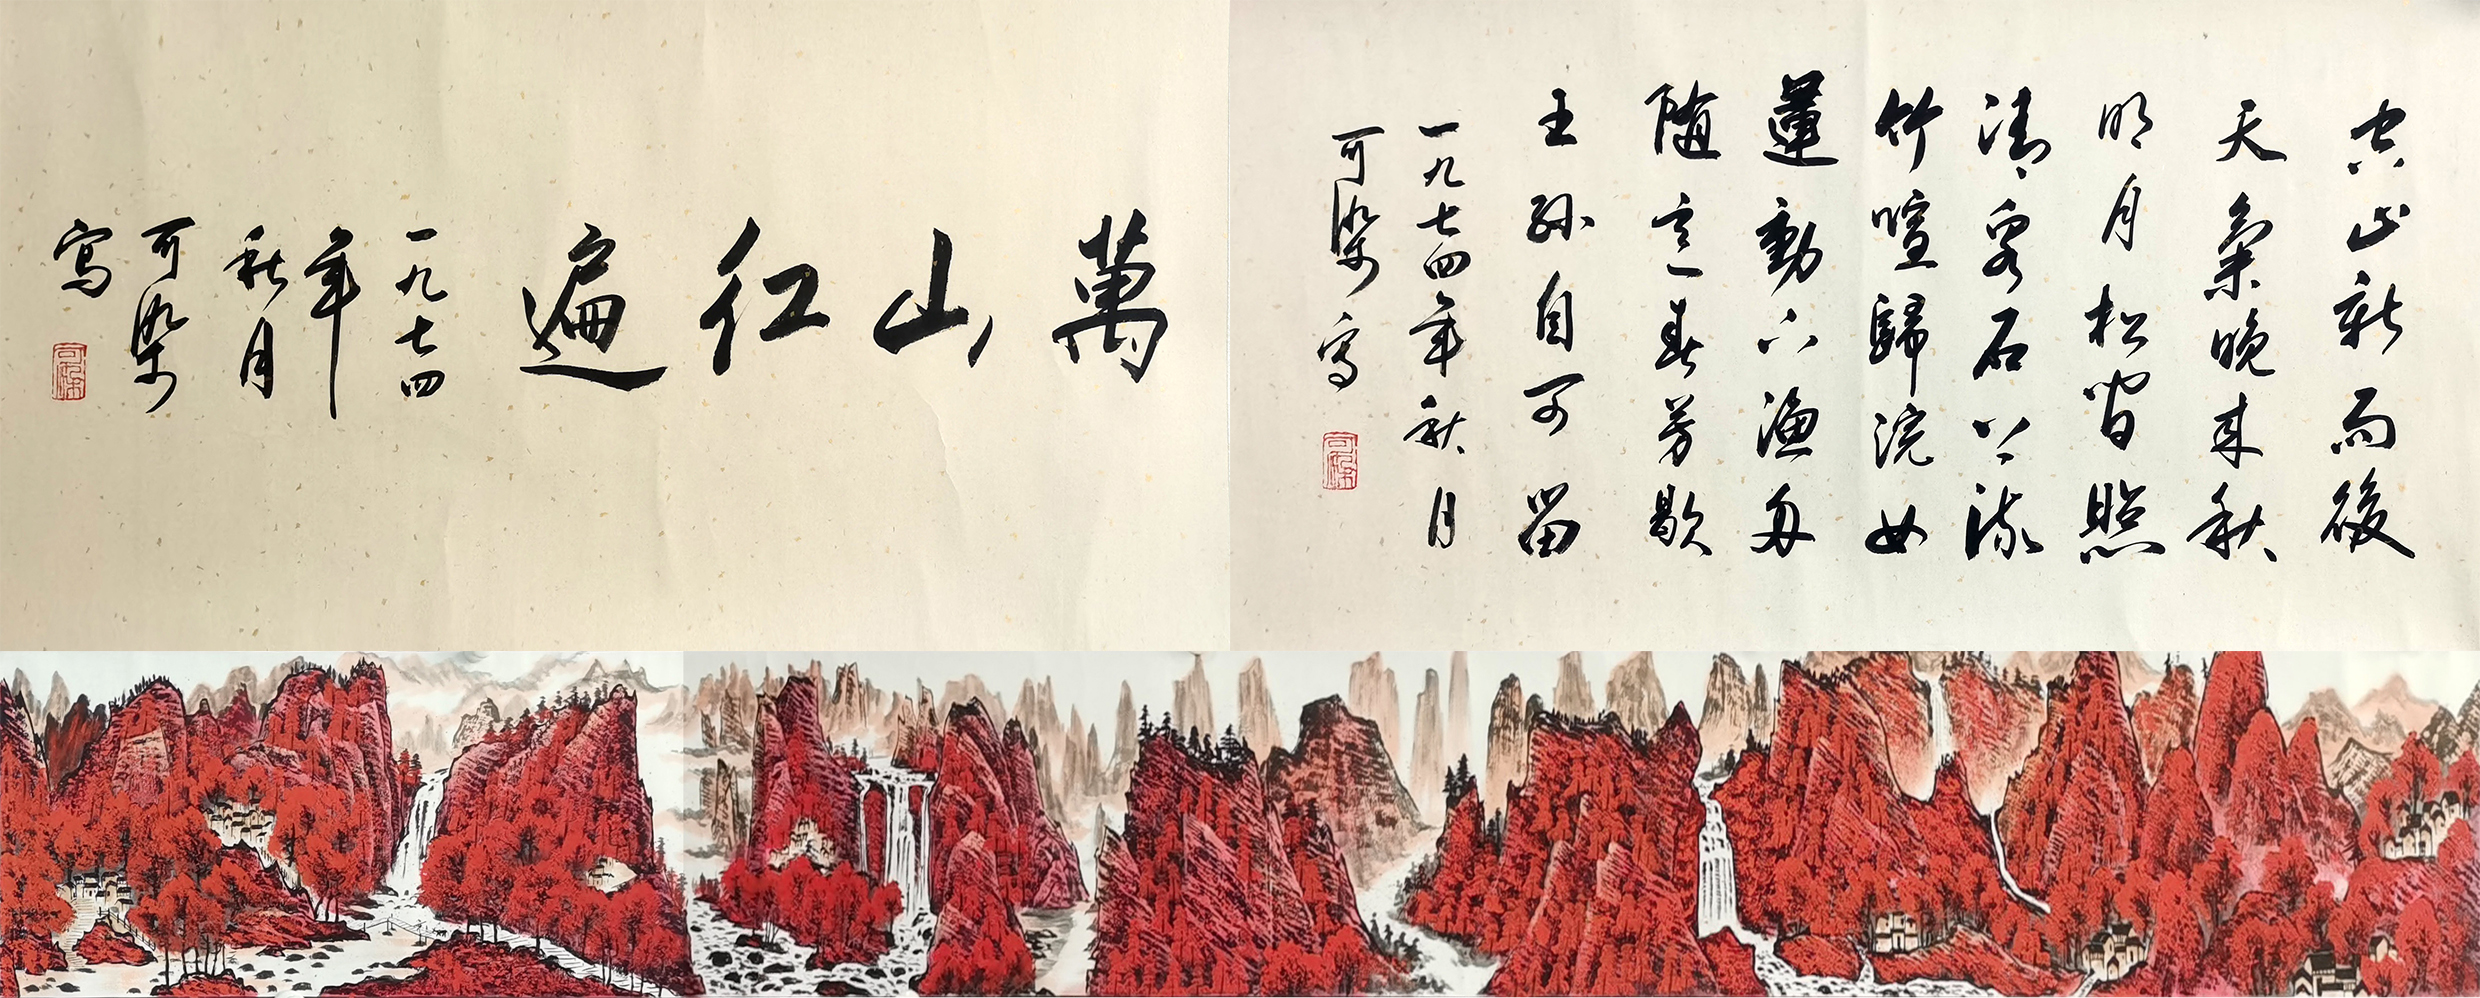 空山新雨後
天氣晚来秋
明月松間照
清泉石上流
竹喧歸浣女
蓮動下漁舟
随意春芳歇
王孫自可留
一九七四年秋月
可染寫
可染
萬山紅遍
一九七四
年
秋月
可染
寫
可染